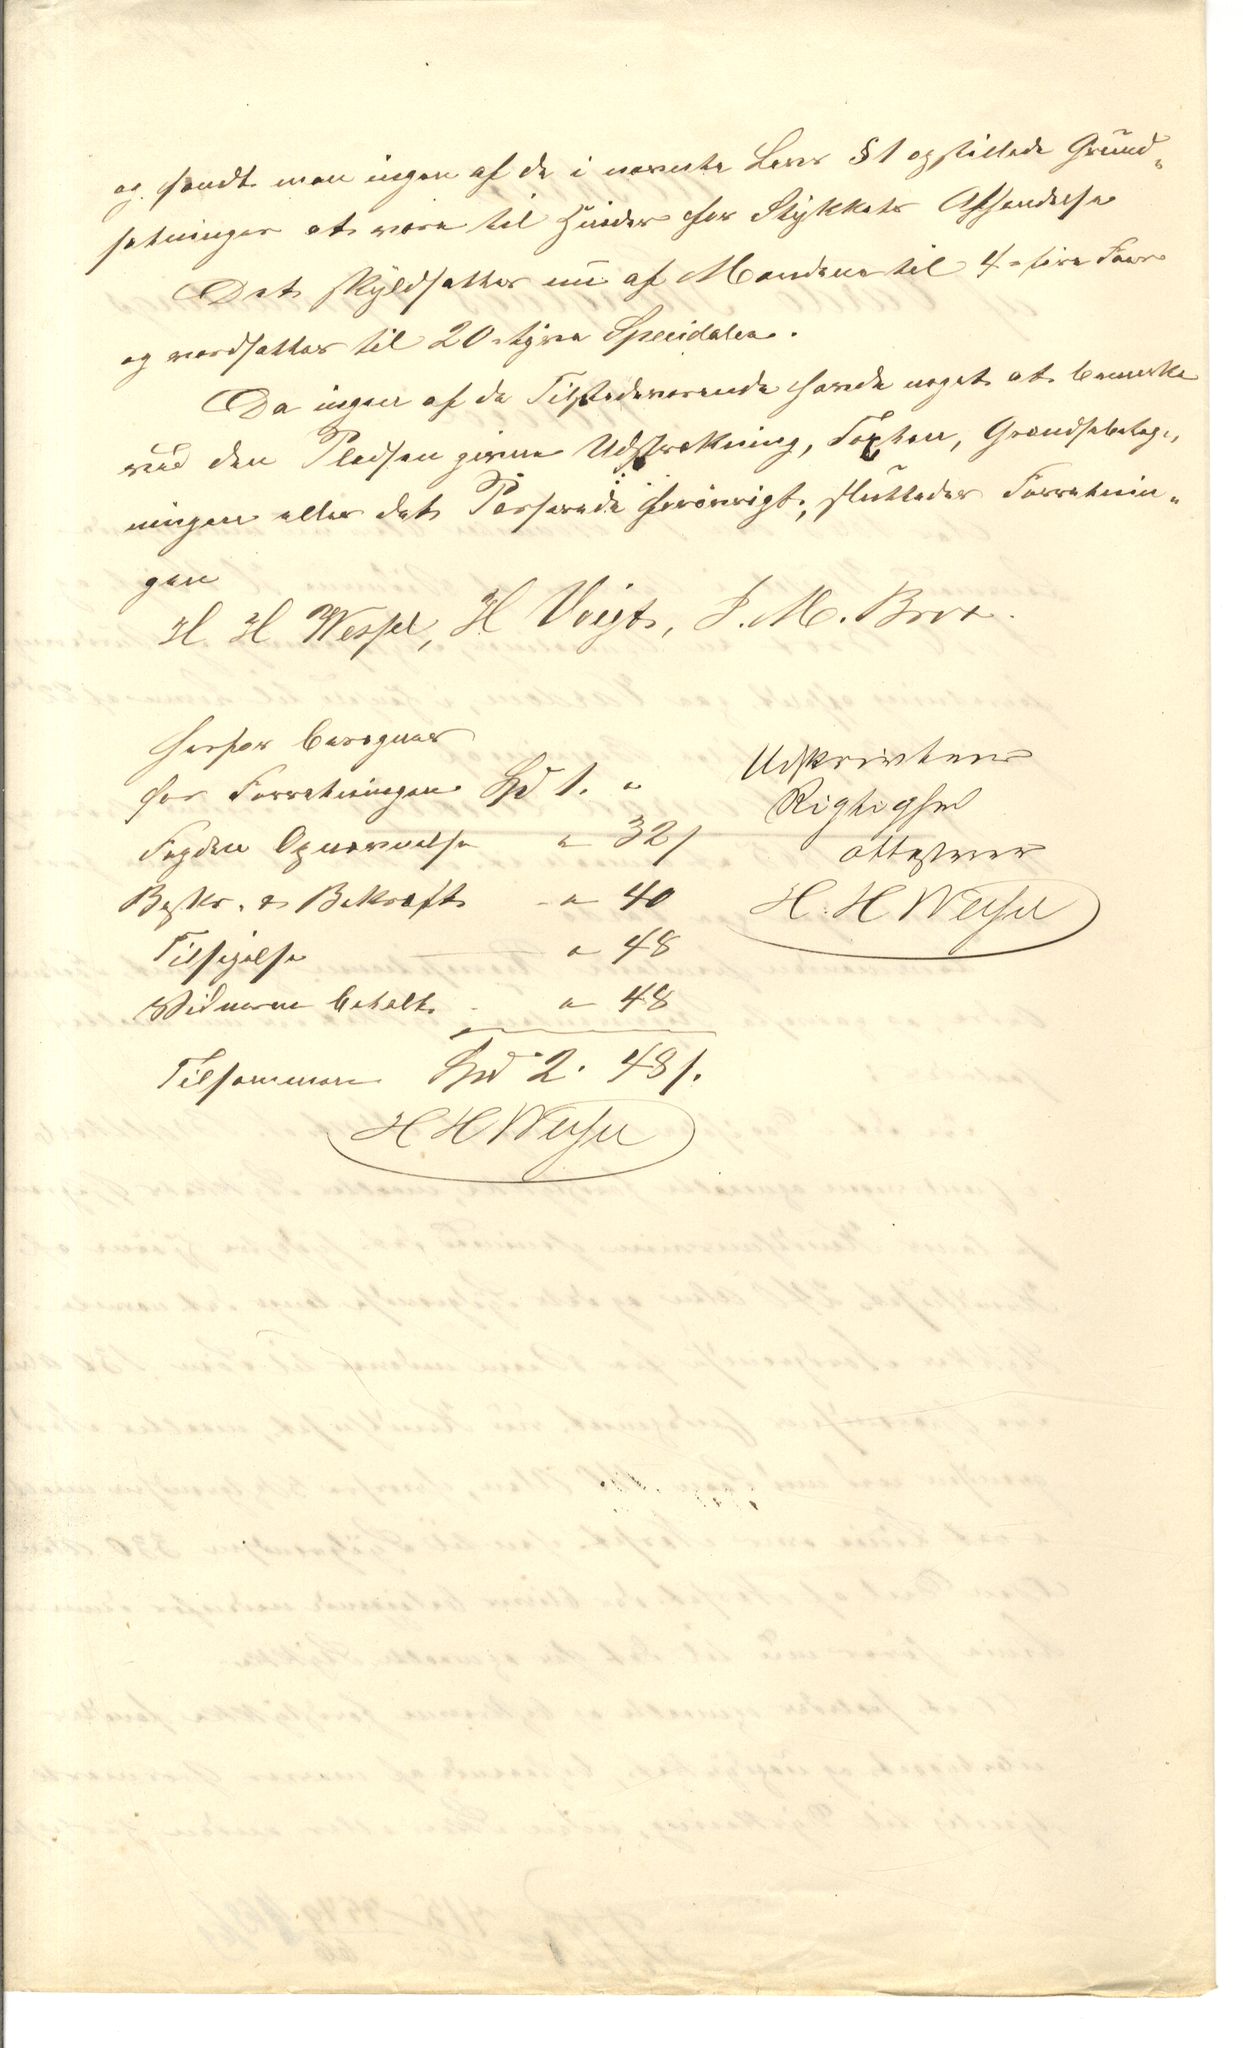 og fandt man ingen af de i nævnte Lovs § 1 opstillede Grund-
sætninger at være til Hinder for Stykkets Afhændelse
Det skyldsattes nu af Mændene til 4 - fire
og værdsattes til 20 - tyve Specidaler.
Da ingen af de Tilstedeværende havde noget at bemærke
ved den Pladsen givne Udstrækning, Grændsebeteg-
ningen eller det Passerede forøvrigt, sluttedes Forretnin-
gen
H H Wessel, H Voigt, J. M. Brox.
Herfor beregnes
for Forretningen Spd 1. "
Fogdens Opnævnelse " 32 s
Beskr. & Bekræft. " 40
Tilsigelse " 48
Vidnerne betalt " 48
Tilsammen Spd 2. 48 s.
H H Wessel
Udskriftens
Rigtighed
attesterer
H. H Wessel